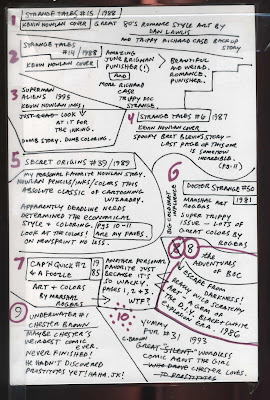 1. STRANGE TALES #15 / 1988
KEVIN NOWLAN COVER
GREAT 80'S ROMANCE STYLE ART BY
DAN LAWLIS
AND TRIPPY RICHARD CASE BACK UP
STORY
2 STRANGE TALES
#14 / 1988
KEVIN NOWLAN COVER
AMAZING
JUNE BRIGMAN
PUNISHER(!)
AND
MORE RICHARD
CASE
TRIPPY DOC
STRANGE.
BEAUTIFUL
AND WEIRD,
ROMANCE.
PUNISHER.
3 SUPERMAN
ALIENS 1995
KEVIN NOWLAN INKS!
LOOK
AT IT FOR
THE INKING.
DUMB STORY. DUMB COLORING.
4 STRANGE TALES #6 / 1987
KEVIN NOWLAN COVER
SPOOKY BRET BLEVINS STORY -
LAST PAGE OF THIS ONE
IS SOMEHOW
INCREDIBLE.
(PG. 11)
5 SECRET ORIGINS #39 / 1989
MY PERSONAL FAVORITE NOWLAN STORY.
NOWLAN PENCILS/INKS/COLORS THIS
ABSOLUTE CLASSIC OF CARTOONING
WIZARDRY.
APPARENTLY DEADLINE NERDS
DETERMINED THE ECONOMICAL
STYLE + COLORING. PGS 10-11
LOOK AT THE COLORS! ARE MY FAVES.
ON NEWSPRINT NO LESS.
6
DOCTOR STRANGE #50
MARSHAL ART 1981
ROGERS
SUPER TRIPPY
ISSUE - LOTS OF
GREAT COLORS BY
ROGERS
7 CAP'N QUICK #2
& A FOOZLE
1985
ART + COLORS
BY MARSHAL
ROGERS
ANOTHER PERSONAL
FAVORITE JUST
BECAUSE IT'S
SO WACKY.
PAGES 1, 2 + 3.
WTF?
8 8 THE
ADVENTURES
OF BOC
ESCAPE FROM
DEADLY DARKNESS!
ART - MILO SCRATCHY
THE A GEM OF
EARLY BLACK + WHITE
EXPLOSION ERA - 1986
9 UNDERWATER #1
CHESTER BROWN
MAYBE CHESTER'S
WEIRDEST COMIC
EVER.
NEVER FINISHED!
HE HADN'T DISCOVERED
PROSTITUTES YET! HAHA. JK!
10
YUMMY
FUR #31 1993
C. BROWN
GREAT "SILENT" WORDLESS
COMIC ABOUT THE GIRL
CHESTER LOVES.